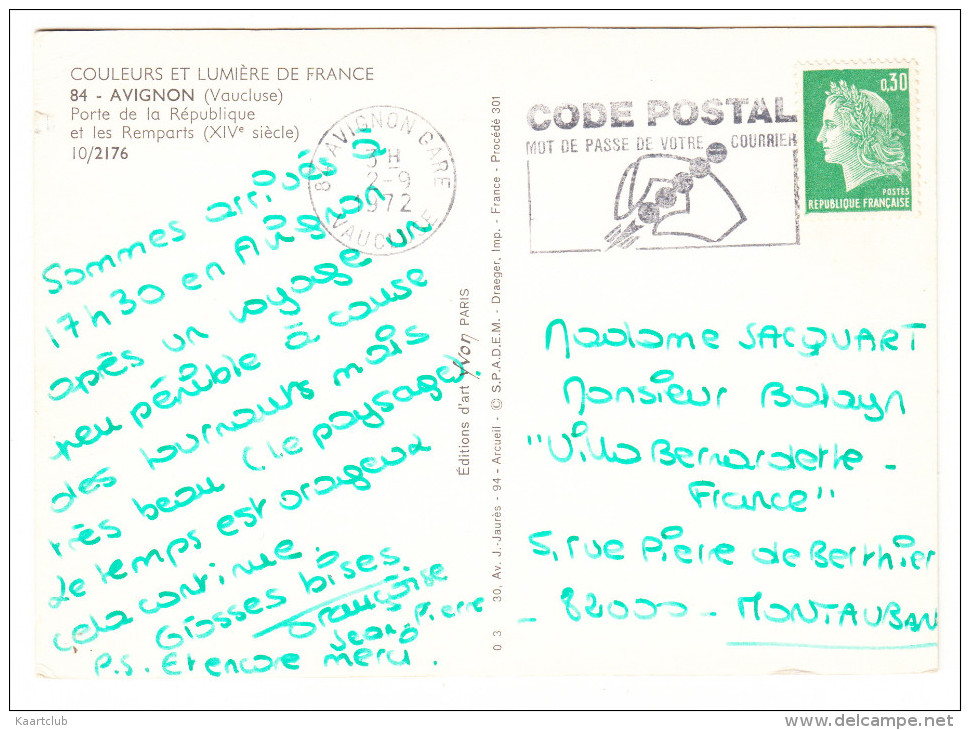 COULEURS ET LUMIÈRE DE FRANCE
84 - AVIGNON (Vaucluse)
Porte de la République
et les Remparts (XIVe siècle)
10/2176
Sommes arrivés à
17h30 en Avignon
après un voyage un
peu pénible à cause
des tournants mais
très beau (le paysage).
Le temps est orageux
cela continue.
Grosses bises.
Françoise
Jean Pierre
P.S. Et encore merci.
84 AVIGNON GARE
3 H
2-9
1972
VAUCLUSE
CODE POSTAL
MOT DE PASSE DE VOTRE COURRIER
0,30
POSTES
REPUBLIQUE FRANÇAISE
Éditions d'art Yvon PARIS
0 3 30, Av. J.-Jaurès - 94 - Arcueil - © S.P.A.D.E.M. - Draeger, Imp. - France - Procédé 301
Madame SACQUART
Monsieur Batayn
"Villa Bernardette -
France"
5, rue Pierre de Berthier
- 82000 - MONTAUBAN
Kaartclub
www.delcampe.net